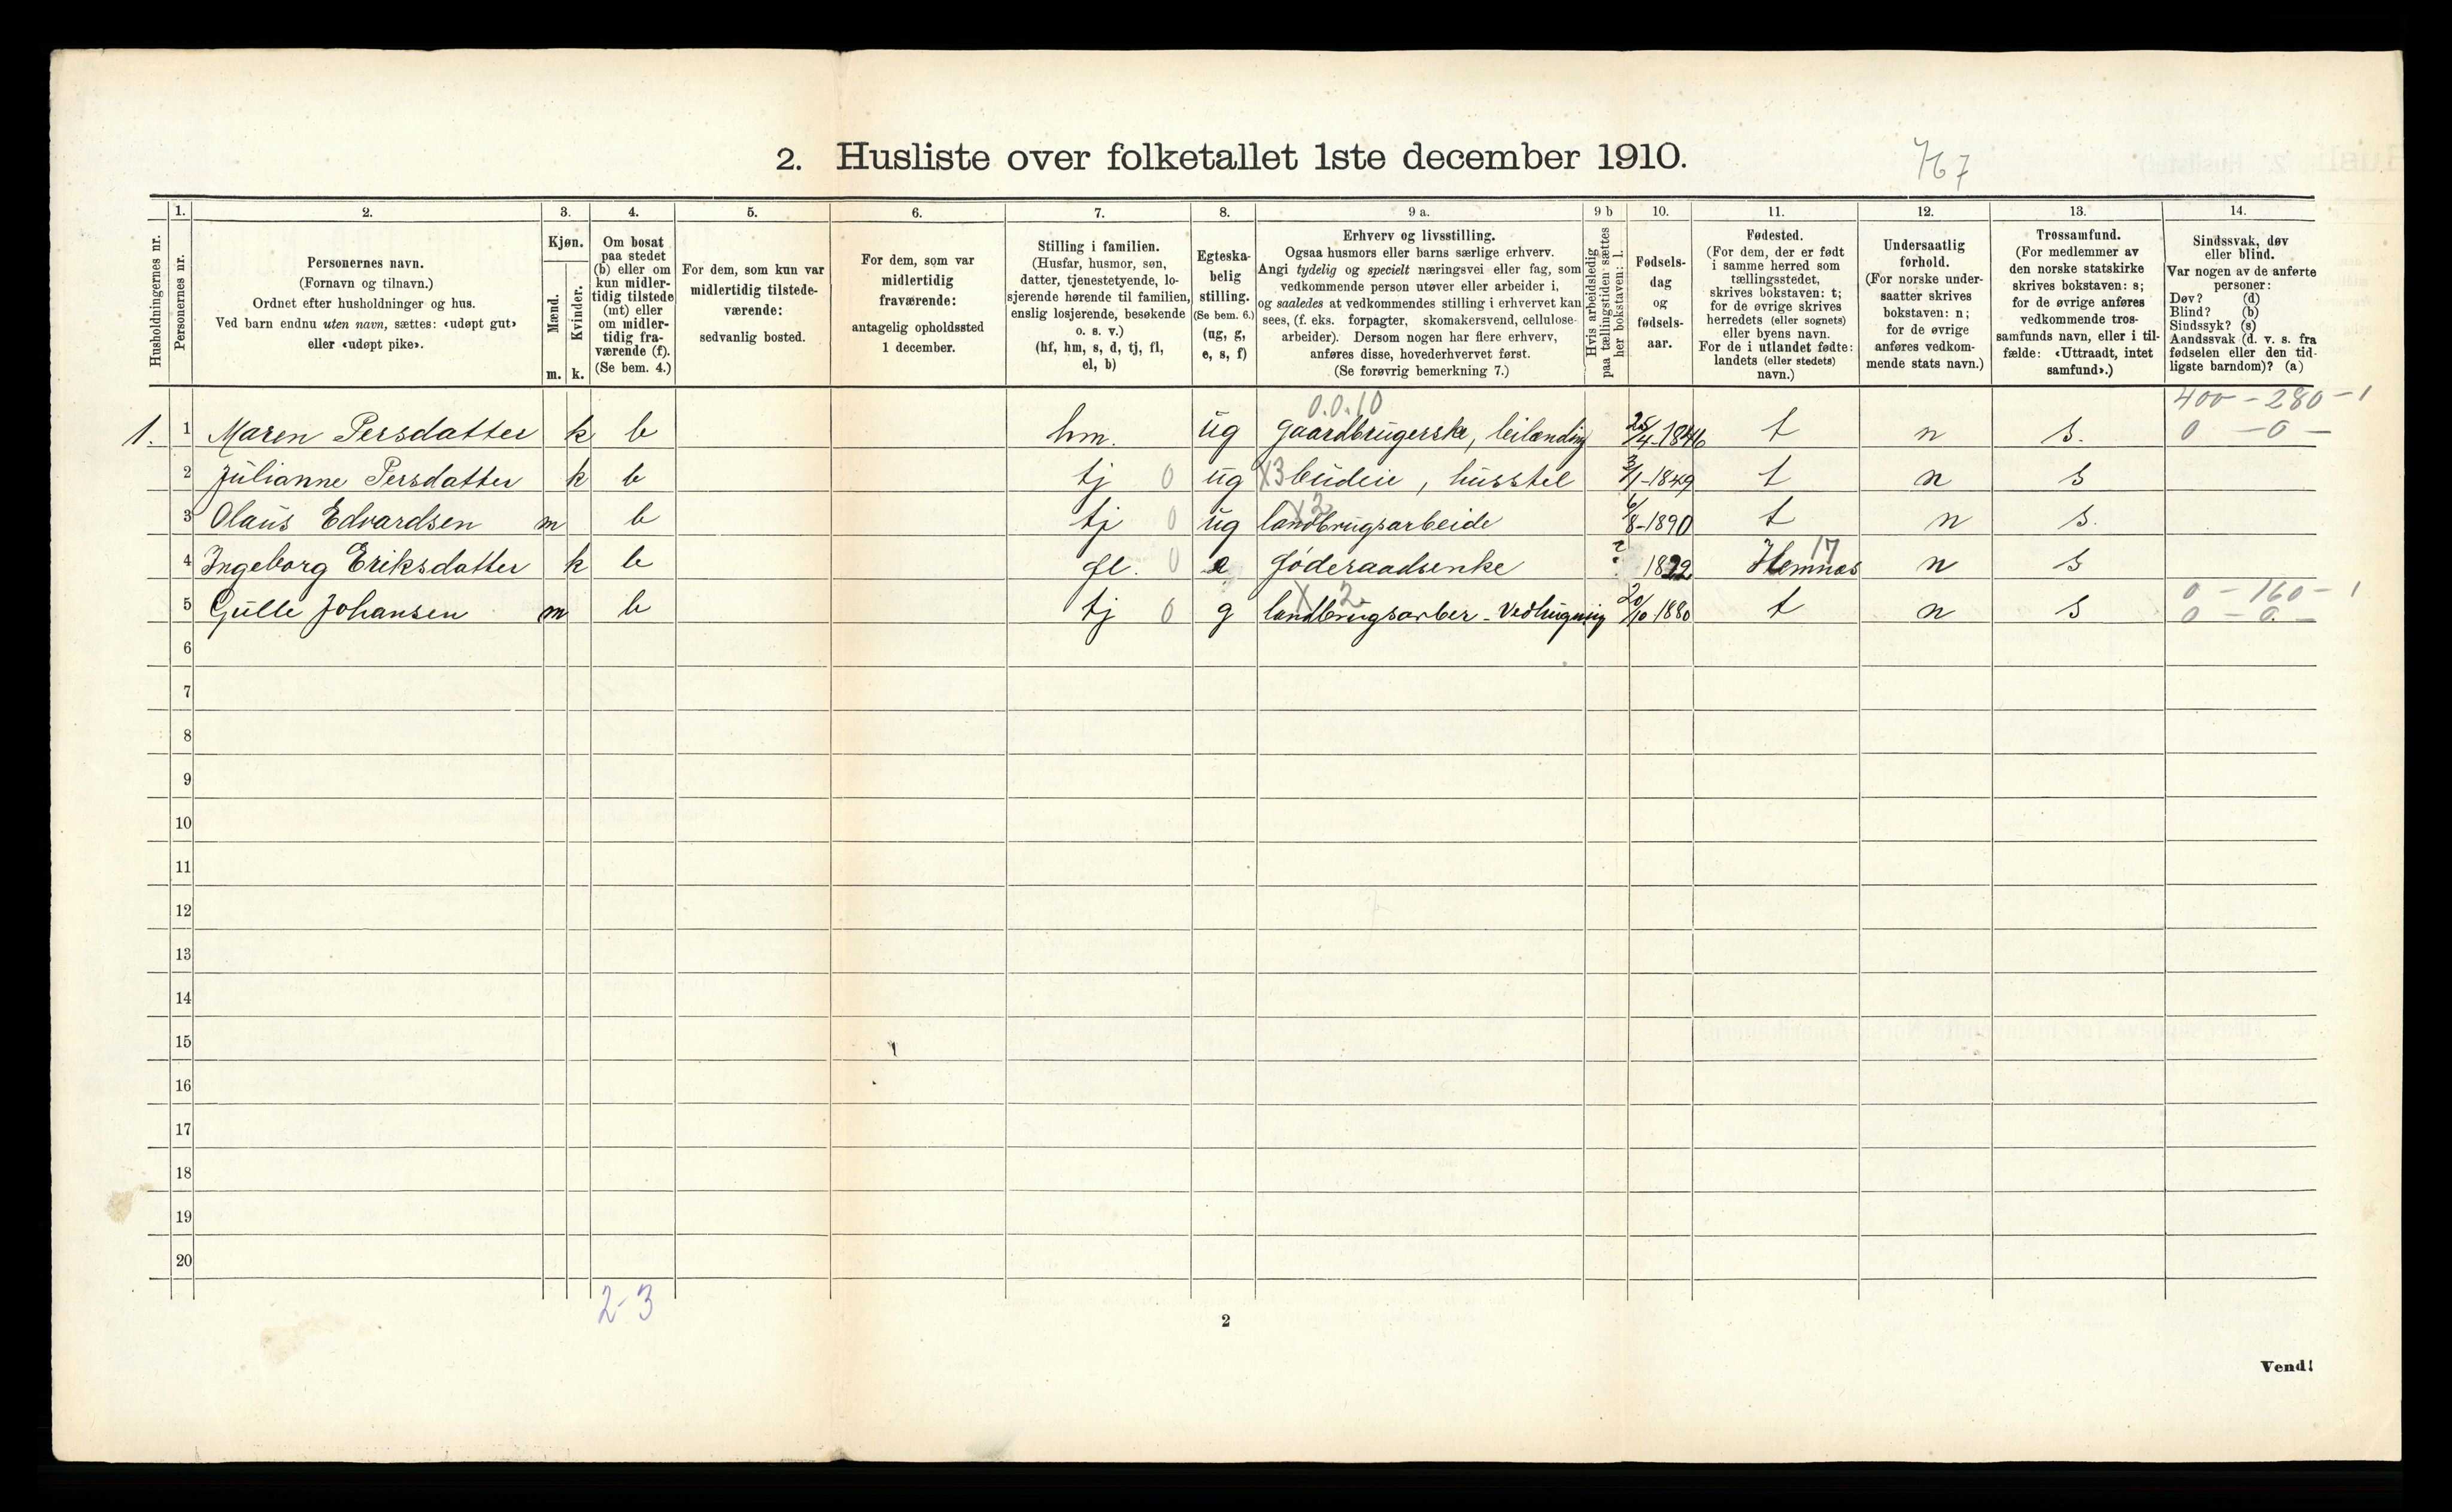 2. Husliste over folketallet 1ste december 1910.
767
Husholdningernes nr.
1.
Personernes nr.
2.
Personernes navn.
(Fornavn og tilnavn.)
Ordnet efter husholdninger og hus.
Ved barn endnu uten navn, sættes: «udøpt gut»
eller «udøpt pike».
3.
Kjøn.
Mænd.
Kvinder.
m. k.
4.
Om bosat
paa stedet
(b) eller om
kun midler-
tidig tilstede
(mt) eller
om midler-
tidig fra-
værende (f).
(Se bem. 4.)
5.
For dem, som kun var
midlertidig tilstede-
værende:
sedvanlig bosted.
6.
For dem, som var
midlertidig
fraværende:
antagelig opholdssted
1 december.
7.
Stilling i familien.
(Husfar, husmor, søn,
datter, tjenestetyende, lo-
sjerende hørende til familien,
enslig losjerende, besøkende
o. s. v.)
(hf, hm, s, d, tj, fl,
el, b)
8.
Egteska-
belig
stilling.
(Se bem. 6.)
(ug, g,
e, s, f)
9 a.
Erhverv og livsstilling.
Ogsaa husmors eller barns særlige erhverv.
Angi tydelig og specielt næringsvei eller fag, som
vedkommende person utøver eller arbeider i,
og saaledes at vedkommendes stilling i erhvervet kan
sees, (f. eks. forpagter, skomakersvend, cellulose-
arbeider). Dersom nogen har flere erhverv,
anføres disse, hovederhvervet først.
(Se forøvrig bemerkning 7.)
9 b
Hvis arbeidsledig
paa tællingstiden sættes
her bokstaven: l.
10.
Fødsels-
dag
og
fødsels-
aar.
11.
Fødested.
(For dem, der er født
i samme herred som
tællingsstedet,
skrives bokstaven: t;
for de øvrige skrives
herredets (eller sognets)
eller byens navn.
For de i utlandet fødte:
landets (eller stedets)
navn.)
12.
Undersaatlig
forhold.
(For norske under-
saatter skrives
bokstaven: n;
for de øvrige
anføres vedkom-
mende stats navn.)
13.
Trossamfund.
(For medlemmer av
den norske statskirke
skrives bokstaven: s;
for de øvrige anføres
vedkommende tros-
samfunds navn, eller i til-
fælde: «Uttraadt, intet
samfund».)
14.
Sindssvak, døv
eller blind.
Var nogen av de anførte
personer:
Døv? (d)
Blind? (b)
Sindssyk? (s)
Aandssvak (d. v. s. fra
fødselen eller den tid-
ligste barndom)? (a)
0.0.10 400 - 280 - 1
1. 1 Maren Persdatter k b hm. ug gaardbrugerske, leilænding 25/4-1846 t n s. 0 - 0 -
2 Julianne Persdatter k b tj 0 ug X3 budeie, husstel 3/1-1849 t n s
3 Olaus Edvardsen m b tj 0 ug X2 landbrugsarbeide 6/8-1890 t n s.
4 Ingeborg Eriksdatter k b fl. 0 e føderaadsenke ? 1822 Hemnæs 17 n s
0 - 160 - 1
5 Gulle Johansen m b tj 0 g X 2 landbrugsarber - Vedhugning 20/10-1880 t n s 0 - 0. -
6
7
8
9
10
11
12
13
14
15
16
17
18
19
20
2-3
2
Vend!